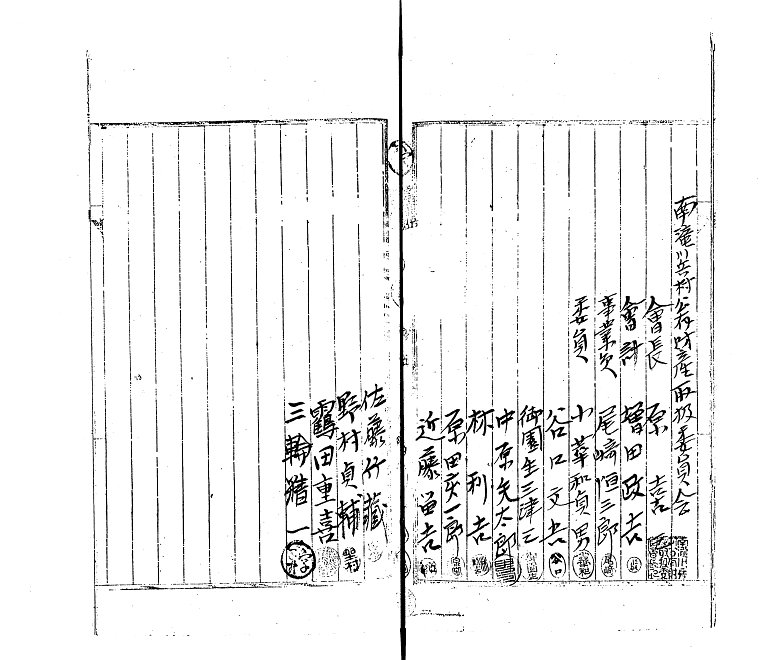 南滝川兵村公有財産取扱委員会
會長 原 喜吉
會計 増田政吉
事業欠 尾﨑恒三郎
委員 小華和貞男
谷口文吉
御園生三津三
中原矢太郎
林利吉
原田亥一郎
近藤留吉
佐藤竹藏
野村貞輔
鶴田重喜
三輪猪一
谷口